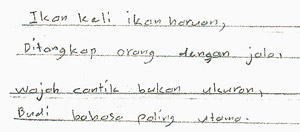 Ikan kali ikan haruan,
Ditangkap orang dengan jala,
Wajah cantik bukan ukuran,
Budi bahasa paling utama.